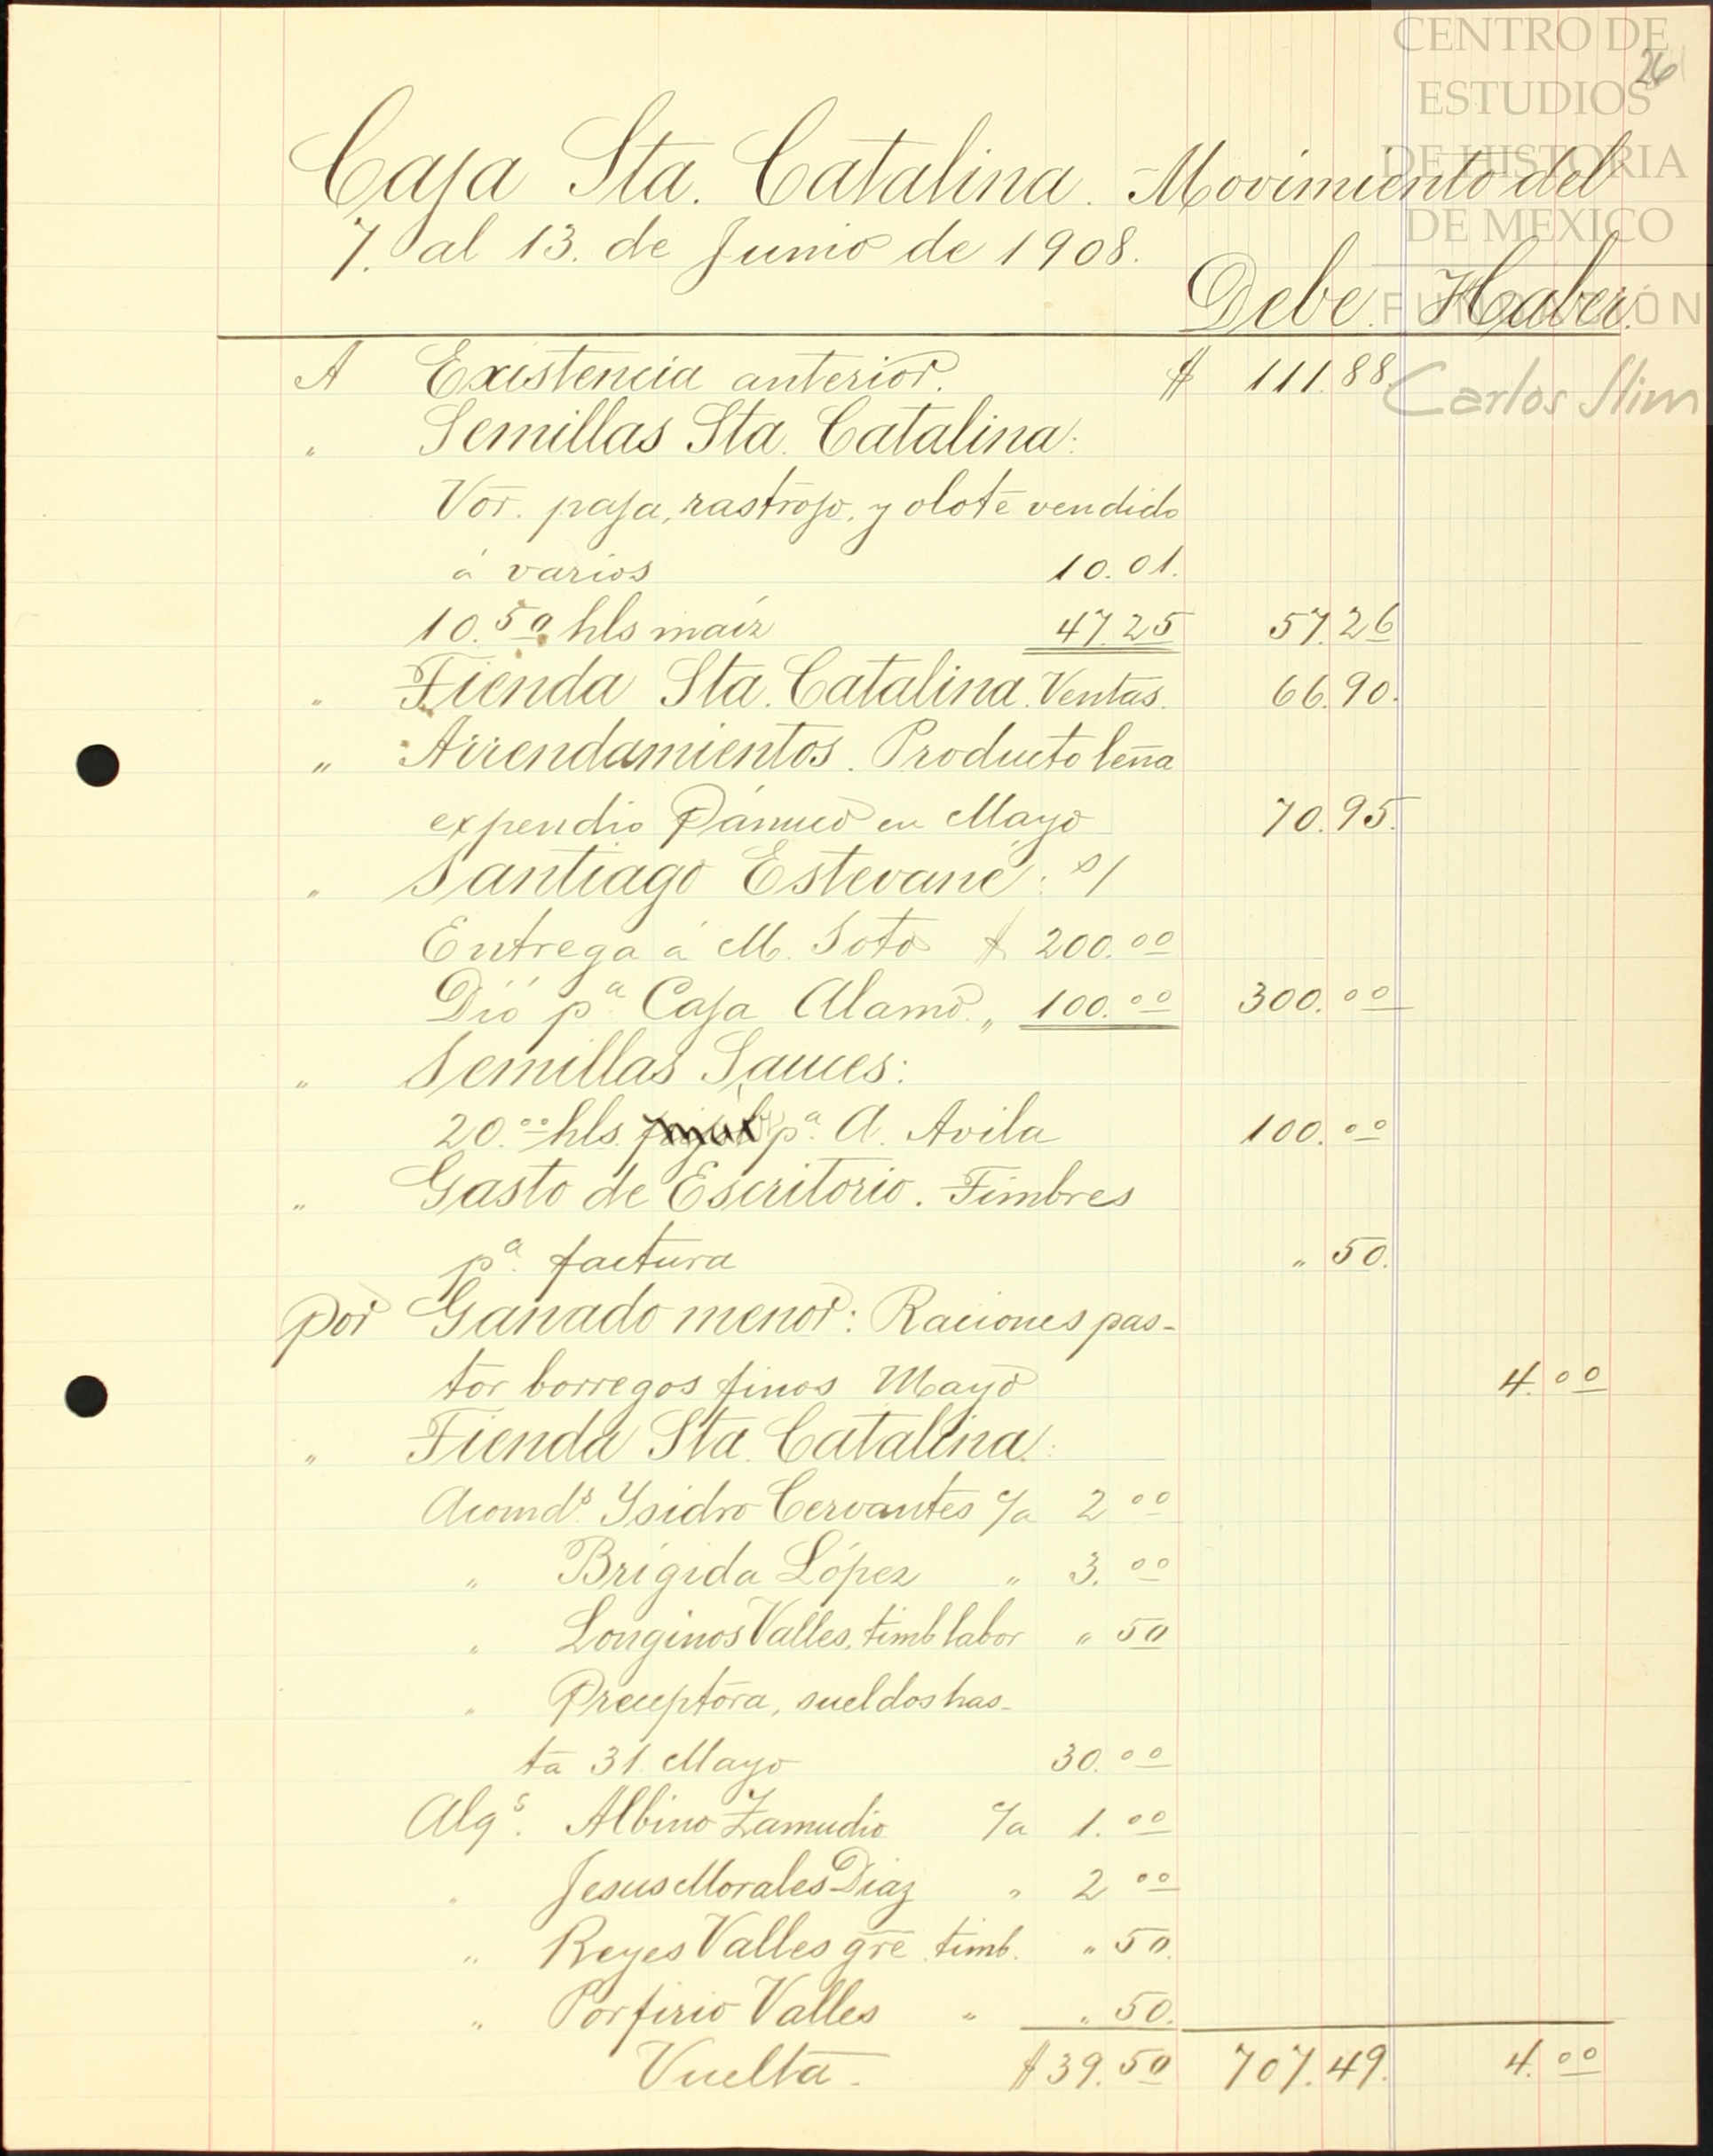 CENTRO DE
ESTUDIOS
DE HISTORIA
DE MEXICO
FUNDACIÓN
Carlos Slim
26
Caja Sta. Catalina. Movimiento del
7. al 13. de Junio de 1908.
Debe. Haber.
A Existencia anterior. $ 111.88.
" Semillas Sta. Catalina:
Vor. paja, rastrojo, y olote vendido
á varios 10.01.
10.50 hls maiz 47.25 57.26
" Tienda Sta. Catalina. Ventas. 66.90.
" Arrendamientos. Producto leña
expendio Pánuco en Mayo 70.95.
" Santiago Estevané: s/
Entrega á M. Soto $ 200.00
Dió pa. Caja Alamo " 100.00 300.00
" Semillas Sauces:
20.00 hls. pa. A. Avila 100.00
" Gasto de Escritorio. Timbres
pa. factura " 50.
por Ganado menor: Raciones pas-
tor borregos finos Mayo 4.00
" Tienda Sta. Catalina:
Acomds. Ysidro Cervantes c/a 2 00
" Brígida López " 3.00
" Longinos Valles, timb labor " 50
" Preceptora, sueldos has-
ta 31. Mayo 30.00
Alqs. Albino Zamudio c/a 1.00
" Jesus Morales Diaz " 2 00
" Reyes Valles gre timb. " 50.
" Porfirio Valles " " 50.
Vuelta. $ 39.50 707.49. 4.00